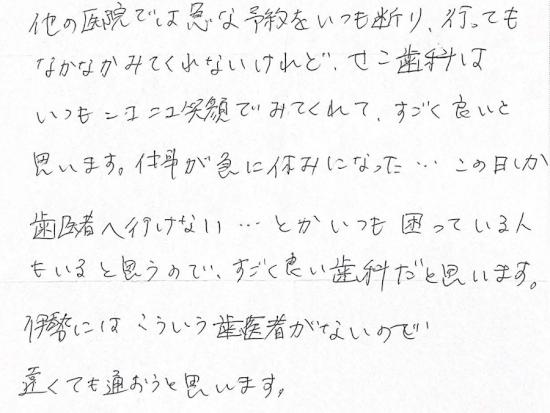 他の医院では急な予約をいつも断り、行っても
なかなかみてくれないけれど、せこ歯科は
いつもニコニコ笑顔でみてくれて、すごく良いと
思います。仕事が急に休みになった…この日しか
歯医者へ行けない…とかいつも困っている人
もいると思うので、すごく良い歯科だと思います。
伊勢にはこういう歯医者がないので
遠くても通おうと思います。